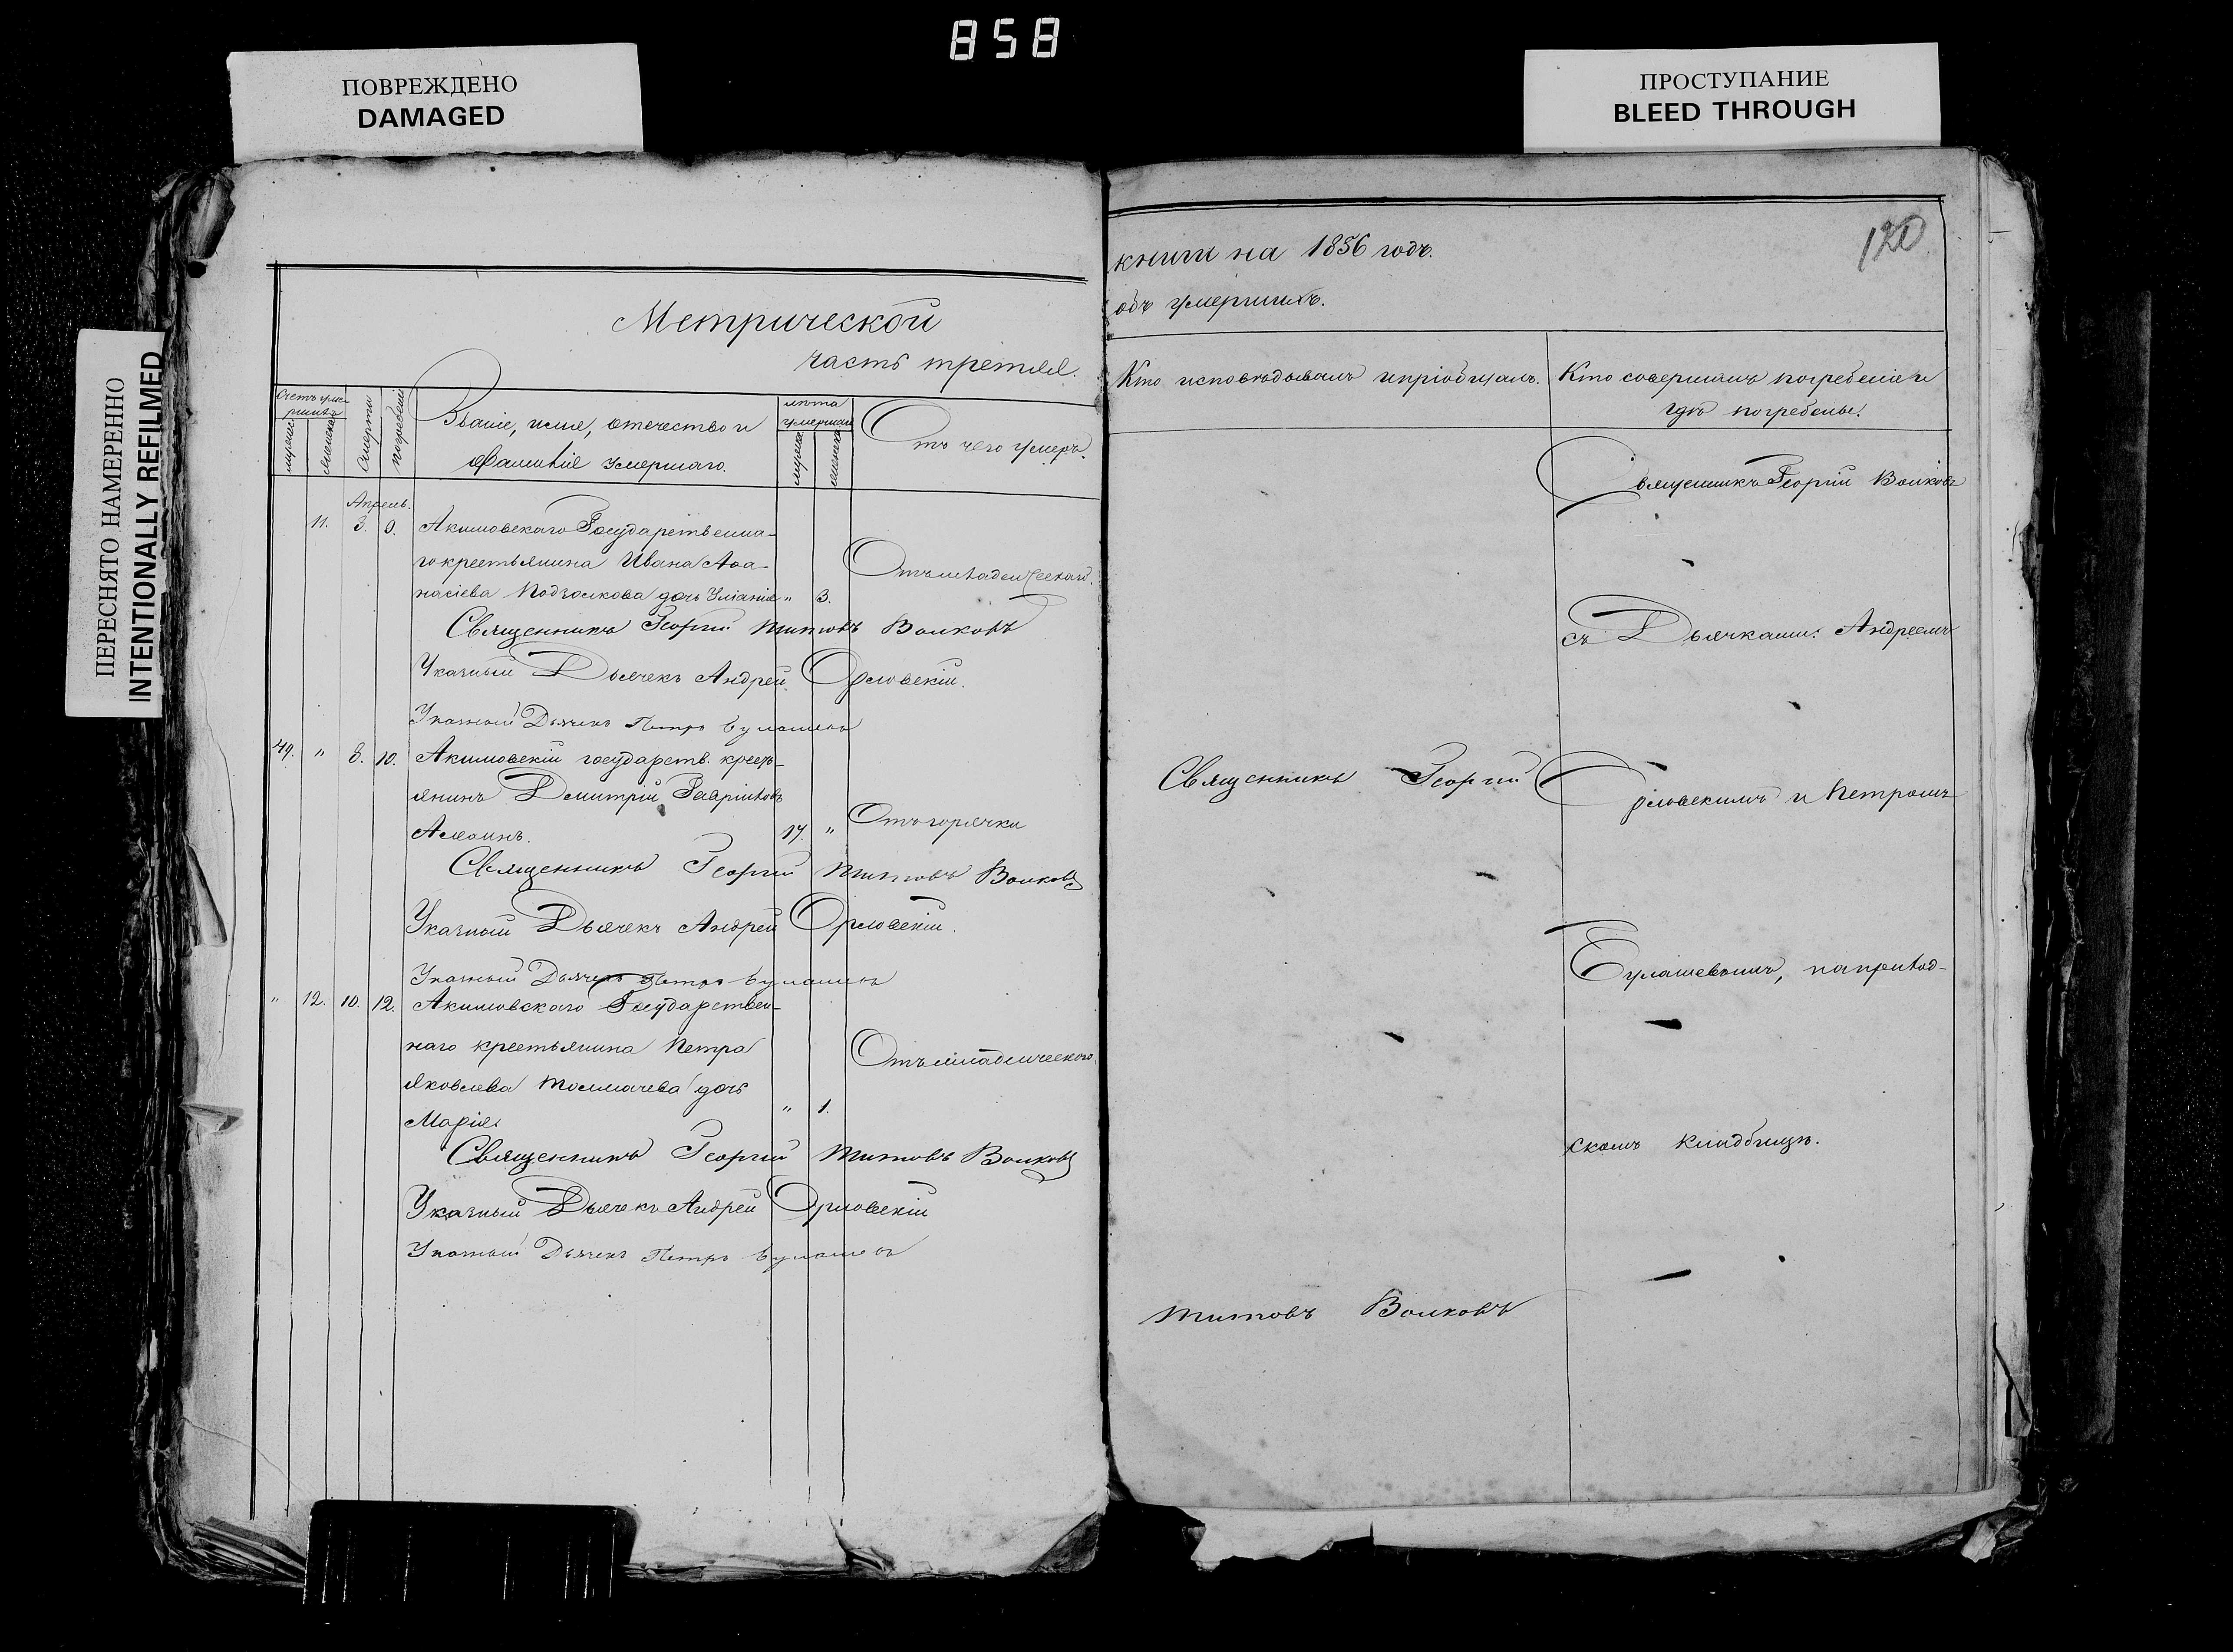 858
ПОВРЕЖДЕНО
DAMAGED
ПРОСТУПАНИЕ
BLEED THROUGH
ПЕРЕСНЯТО НАМЕРЕННО
INTENTIONALLY REFILMED
Метрической
часть третяя.
Счетъ умершихъ
мужеск
женска
Смерти
погребенія
Званіе, имя, отечество и
фамилія умершаго.
лѣта
умершаго
мужска
женска
Отъ чего умеръ.
Апрель.
11. 3. Акимовскаго Государственна-
го крестьянина Ивана Аѳа-
насіева Подголкова дочь Уліанія " 3. Отъ младенческаго.
Священникъ Георгій Титовъ Волковъ
Указный Дьячекъ Андрей Орловскій.
Указный Дьячекъ Петръ Булашевъ
49. " 8. 10. Акимовскій государств. крест-
янинъ Дмитрій Гавріиловъ
17. " Отъ горячки
Священникъ Георгій Титовъ Волковъ
Указный Дьячекъ Андрей Орловскій.
Указный Дьячекъ Петръ Булашевъ
" 12. 10. 12. Акимовскаго Государствен-
наго крестьянина Петра
Яковлева Толмачева дочь
Марія " 1. Отъ младенческого.
Священникъ Георгій Титовъ Волковъ
Указный Дьячекъ Андрей Орловскій
Указный Дьячекъ Петръ Булашевъ
120
книги на 1856 годъ.
объ умершихъ.
Кто исповѣдывалъ и пріобщалъ.
Кто совершалъ погребеніе и
гдѣ погребены.
Священникъ Георгій Волковъ
съ Дьячками: Андреемъ
Орловскимъ и Петромъ
Булашевымъ, на приход-
скомъ кладбищѣ.
Священникъ Георгій
Титовъ Волковъ